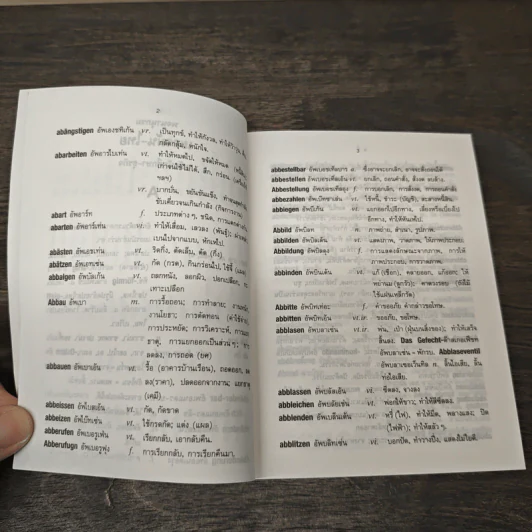 2
abängstigen อัพเองชทิเก้น vr. เป็นทุกข์, ทำให้กังวล, ทำให้
กลัดกลุ้ม, หนักใจ.
abarbeiten อัพอาร์ไบเท่น vt. ทำให้หมดไป, ขจัดให้หมด
เก่าจนใช้ไม่ได้, สึก, กร่อน
ฯลฯ)
vr. บากบั่น, ขยันขันแข็ง, ทำงานหนัก
ขับเคี่ยวจนเกินกำลัง
abart อัพอาร์ท f. ประเภทต่าง ๆ, ชนิด,
abarten อัพอาร์เท่น vi. ทำให้เสื่อม, เลวลง (พันธุ์)
เบนไปจากแบบ, ทักษไป.
abästen อัพเอสเท่น vt. ริดกิ่ง, ตัดเล็บ, ตัด (กิ่ง).
abätzen อัพเอทเซ่น vt. กัด (กรด), กินกร่อนไป,
abbalgen อัพบัลเก้น vt. ถลกหนัง, ลอกผิว, ปอกเปลือก,
เทาะเปลือก
Abbau อัพเบา m. การรื้อถอน; การทำลาย;
งานโยธา; การตัดทอน
การประหยัด; การวิเคราะห์,
ธาตุ; การแยกออกเป็นส่วน ๆ;
ลดลง, การถอด (ยศ)
abbauen อัพเบาเอ้น vt. รื้อ (อาคารบ้านเรือน), ถอดออก,
ลง(ราคา), ปลดออกจากงาน;
(เคมี)
abbeissen อัพไบสเอ้น vt. กัด, กัดขาด
abbeizen อัพไบ๊ทเซ่น vt. ใช้กรดกัด; แต่ง (แผล)
abberufen อัพเบอรูเฟ่น vt. เรียกกลับ, เอากลับคืน.
Abberufung อัพเบอรูฟุ่ง f. การเรียกกลับ, การเรียกคืนมา.
3
abbestellbar อัพเบสเทลบาร a. ซึ่งอาจจะยกเลิก,
abbestellen อัพเบสเทลเอ้น vt. ยกเลิก, ถอนคำสั่ง,
Abbestellung อัพเบสเทลลุง f. การบอกเลิก, การสั่งงด,
abbezahlen อัพเบ๊ทซาเล่น vt. ใช้หนี้, ชำระ (บัญชี),
abbiegen อัพบีเก้น vt. แยกออกไปอีกทาง,
อีกทาง, ทำให้หันเหไป.
Abbild อัพบิลท n. ภาพถ่าย, สำเนา, รูปภาพ.
abbilden อัพบิลเด้น vt. แสดงภาพ, วาดภาพ, ให้ภาพประกอบ
Abbildung อัพบิลดุง f. การแสดงลักษณะจากภาพ, การให้
ภาพประกอบ
abbinden อัพบินเด้น vt. แก้ (เชือก), คลายออก,
หย่านม (ลูกวัว);
ใช้แผ่นเหล็กรัด)
Abbitte อัพบิทเท่อ f. คำขออภัย, คำกล่าวขอโทษ.
abbitten อัพบิทเท้น vt.ir. ขออภัย, ขอโทษ.
abblasen อัพบลาเซ่น vt.ir. พ่น, เป่า (ฝุ่นบนสิ่งของ); ทำให้เสร็จ
สิ้นลง. Das Gefecht-
อัพบลาเซ่น - พักรบ. Abblaseventil
อัพบลาเซอเว็นทิล n. ลิ้นไอเสีย, ลิ้น
ท่อไอเสีย.
abblassen อัพบลัสเอ้น vi. ซีดลง, จางลง.
abbleichen อัพไบลเช่น vt. ฟอกให้ขาว; ทำให้สีซีดลง.
abblenden อัพบเล็นเด้น vt. หรี่ (ไฟ), ทำให้มืด, พลางแสง; ปิด
(ไฟฟ้า); ทำให้สลัว ๆ.
abblitzen อัพบลิทเซ่น vi. บอกปัด,